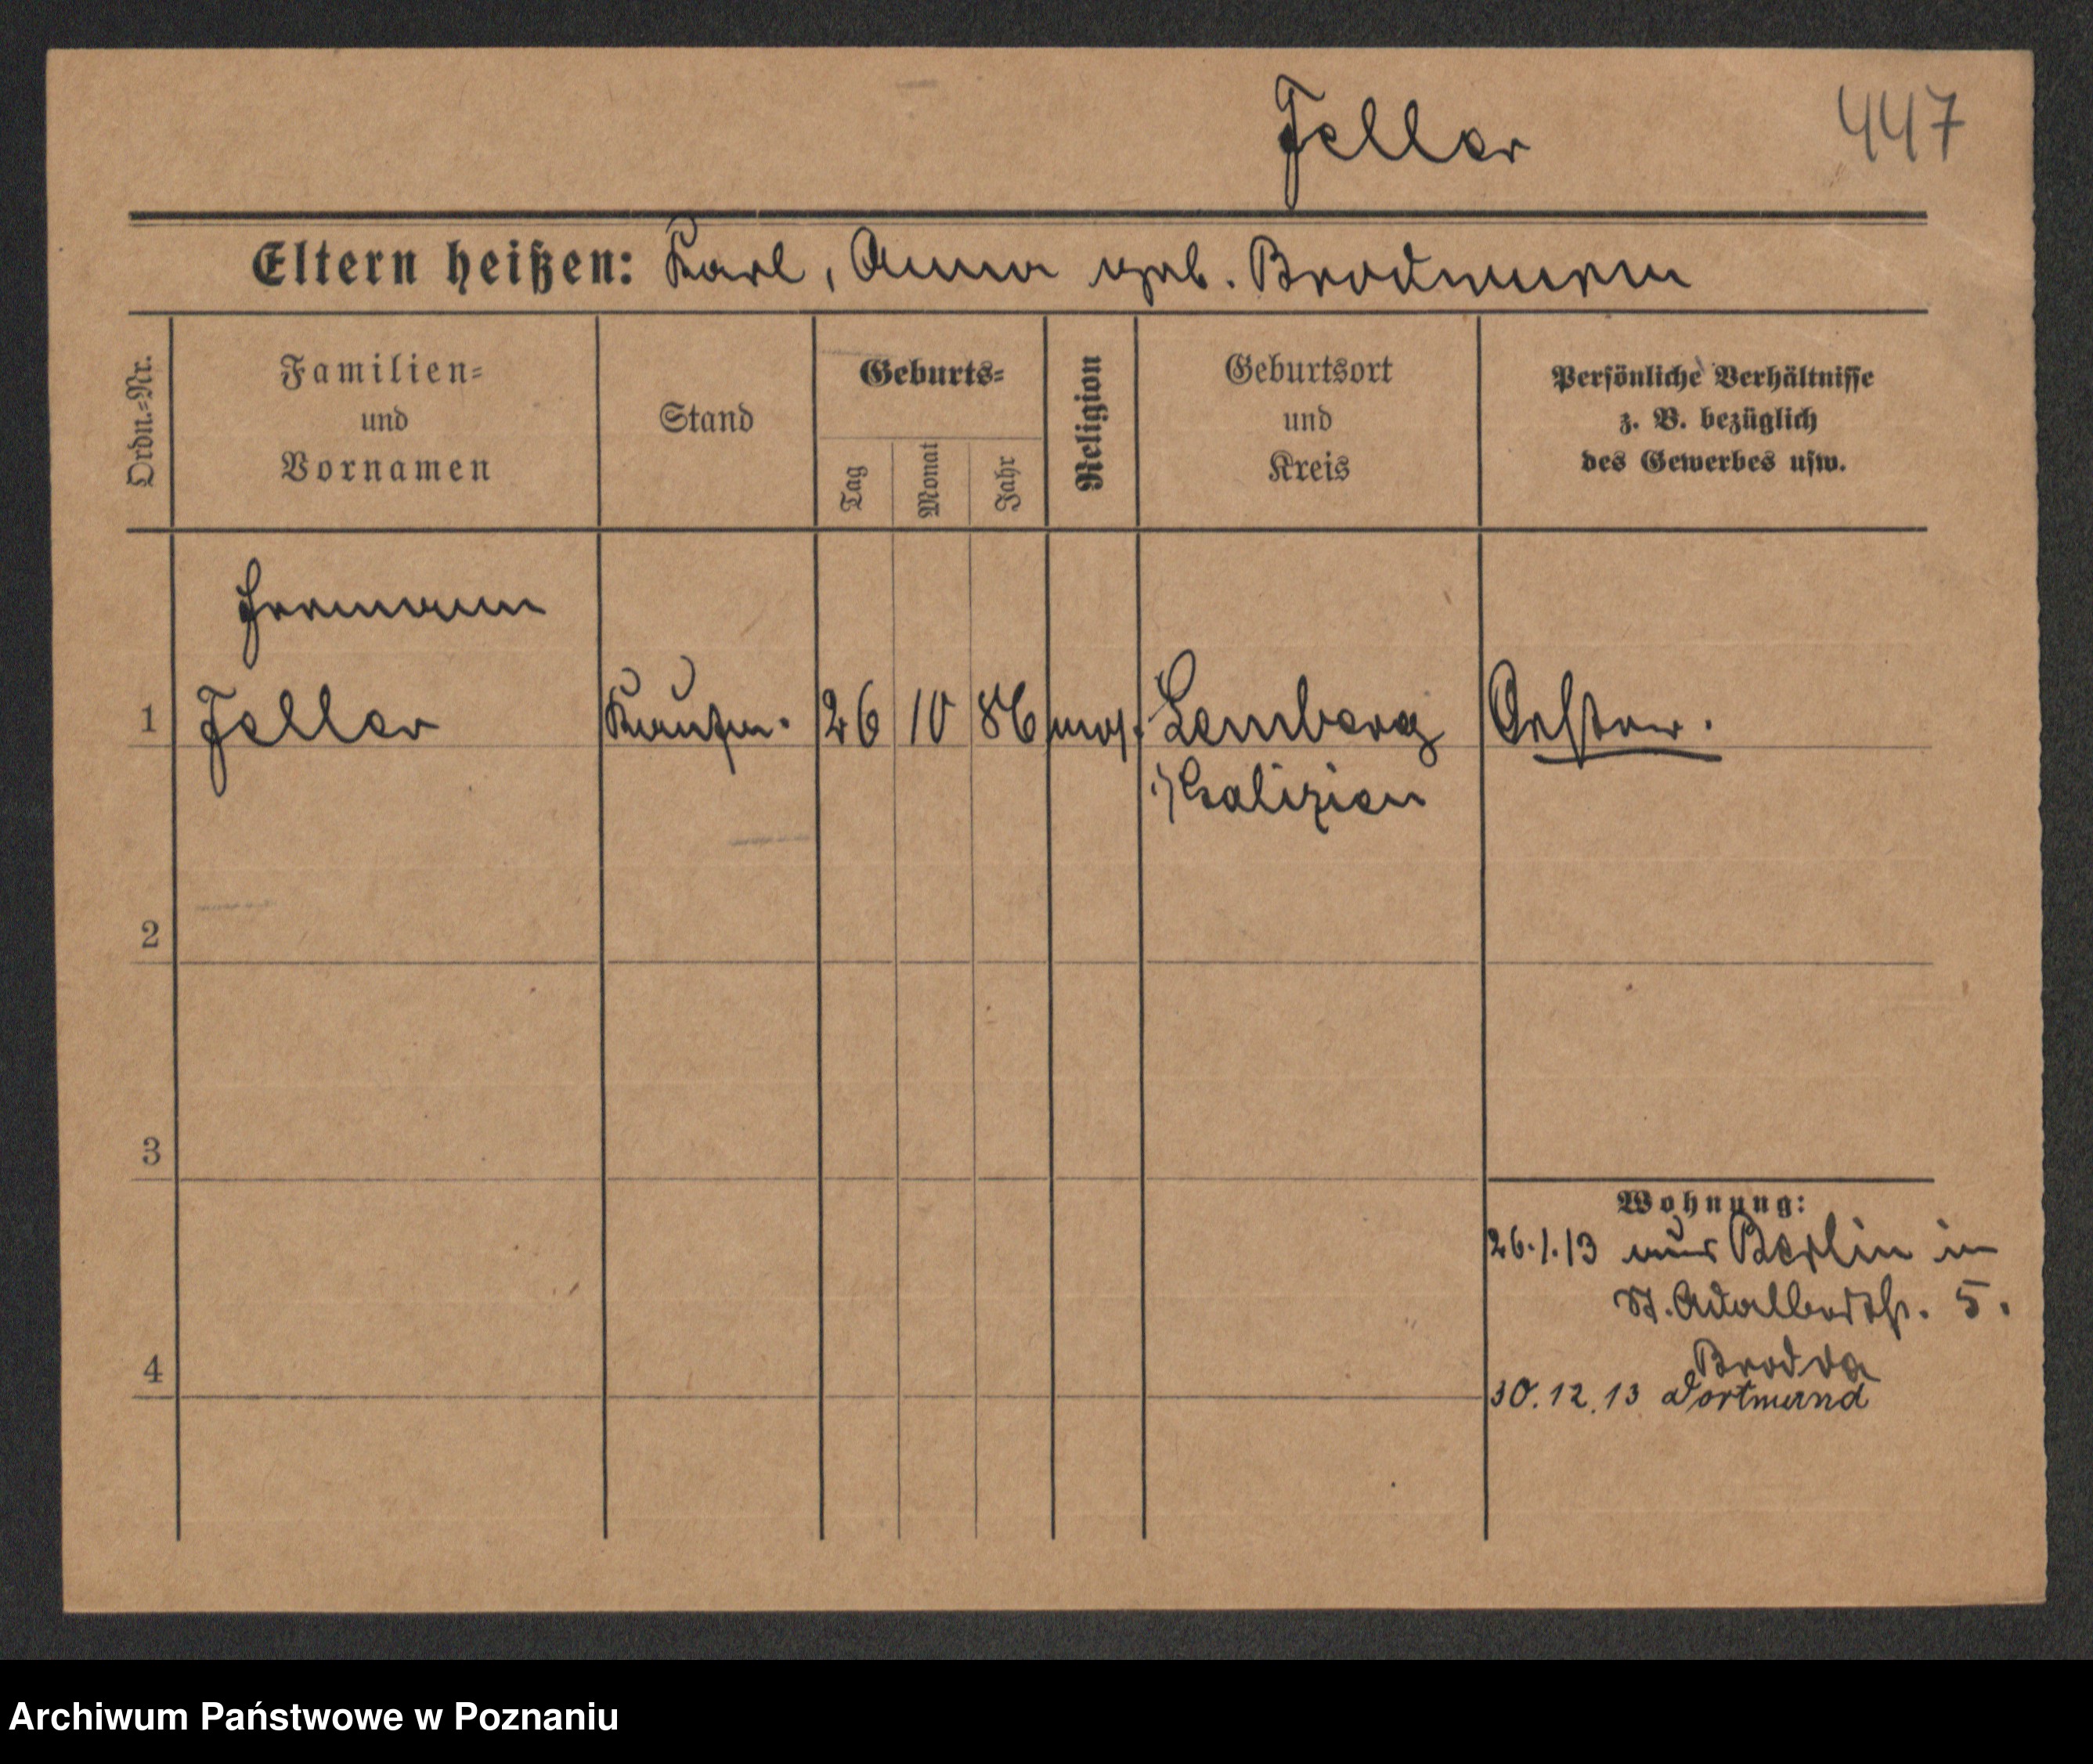 Feller 447
Eltern heißen: Karl, Anna geb. Brodmann
Ordn.=Nr.
Familien=
und
Vornamen
Stand
Geburts=
Tag
Monat
Jahr
Religion
Geburtsort
und
Kreis
Persönliche Verhältnisse
z. B. bezüglich
des Gewerbes usw.
Hermann
1 Feller Kaufm. 26 10 86 mos. Lemberg Oestr.
i/Galizien
2
3
Wohnung:
26.1.13 aus Berlin in
St. Adalbertstr. 5.
Brodda
4
30.12.13 Dortmund
Archiwum Państwowe w Poznaniu